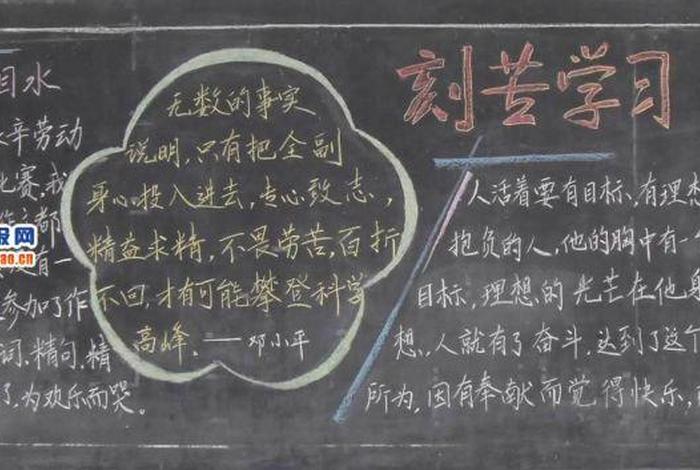 目水
辛劳动
比赛,我
都
有一
参加了作
词,精句,精
了,为欢乐而哭。
报网
ao.cn
无数的事实
说明,只有把全副
身心投入进去,专心致志,
精益求精,不畏劳苦,百折
不回,才有可能攀登科学
高峰。——邓小平
刻苦学习
人活着要有目标,有理想
抱负的人,他的胸中有一
目标,理想的光芒在他
想,人就有了奋斗,达到了这
所为,因有奉献而觉得快乐,